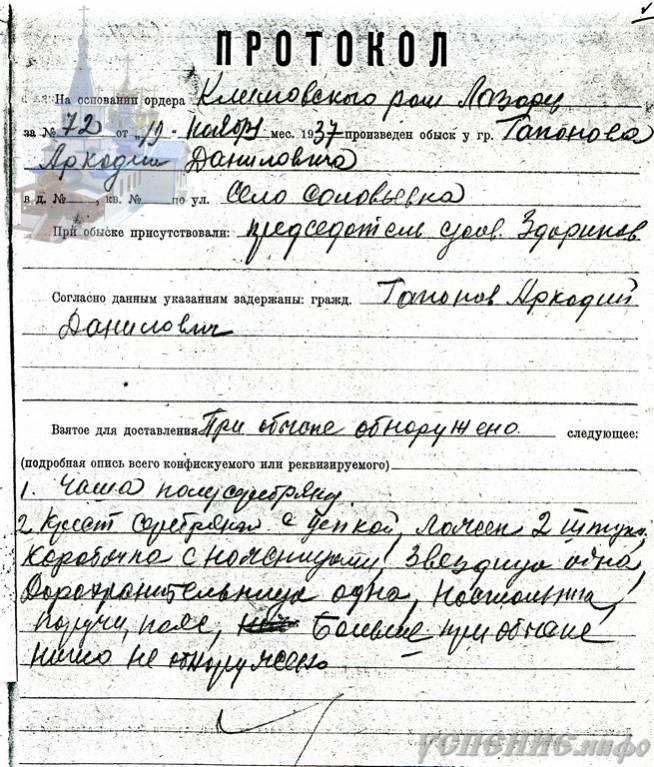 ПРОТОКОЛ
На основании ордера Климовского рай
за № 72 от 19 - ноября мес. 1937 произведен обыск у гр. Гапонова
Аркадия Даниловича
в д. , кв. № по ул. Село Соловьевка
При обыске присутствовали: председатель
Согласно данным указаниям задержаны: гражд. Гапонов Аркадий
Данилович
Взятое для доставления При обыске обнаружено следующее:
(подробная опись всего конфискуемого или реквизируемого)
1. Чаша
2. Крест с цепкой, 2 штуки,
коробочка с Звездица одна,
Дарохранительница одна,
поручи, пояс, Больше при обыске
ничего не обнаружено
УСПЕНИЕ.инфо